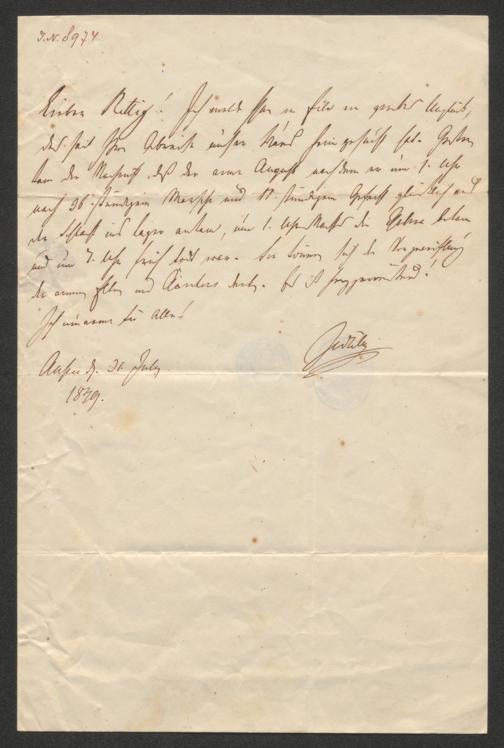 I.N. 8974
Lieber Rettig! Ich melde Ihnen in Eile ein großes Unglück,
das seit Ihrer Abreise unser Haus heimgesucht hat. Gestern
kam die Nachricht daß der arme August nachdem er um 1. Uhr
nach 36 stündigem Marsche und 11 stündigem Gefecht glücklich aus
der Schlacht ins Lager ankam, um 1. Uhr Nachts die Cholera bekam
und um 7. Uhr früh todt war. Sie können sich die Verzweiflung
der armen Eltern und Kinder denken. Es ist herzzerreißend!
Ich umarme Sie Alle!
Zedlitz
Aussee d. 31 July
1849.